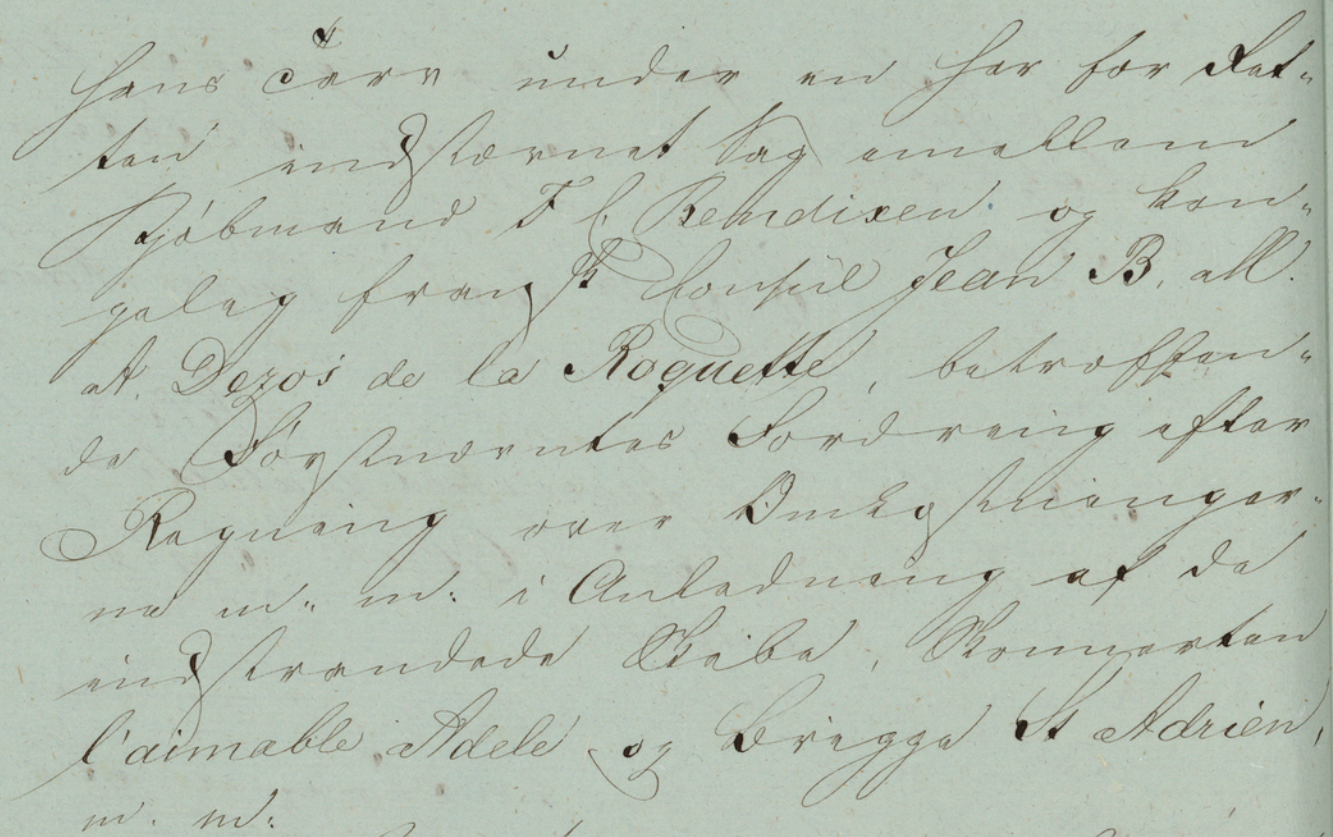 hans Tarv under en her for Ret-
ten indstævnet Sag imellem
Kjøbmand F C. Bendixen og kon-
gelig fransk Consul Jean B. all.
A. Dezos de la Roquette, betræffen-
de Førstnævntes Fordring efter
Regning over Omkostninger-
ne m. m. i Anledning af de
indstrandede Skibe, Skonnerten
l'aimable Adele og Brigge St Adrien,
m. m.